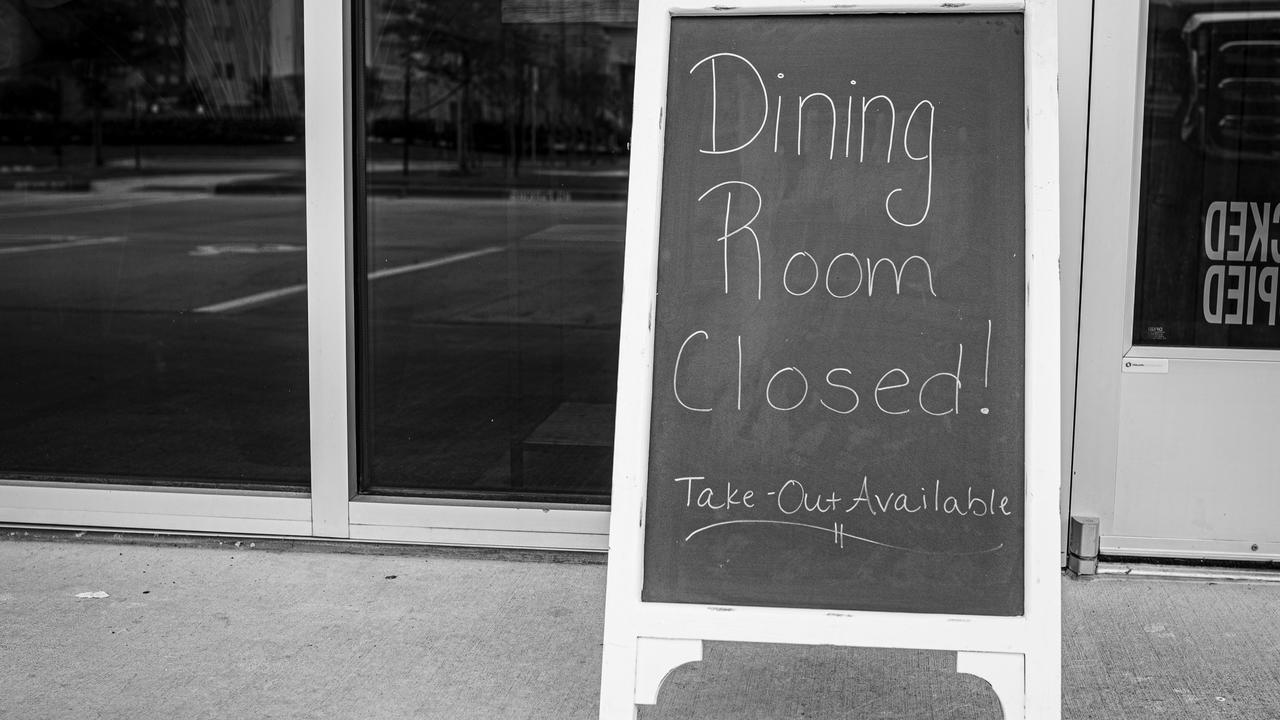 Dining
Room
Closed!
Take-Out Available